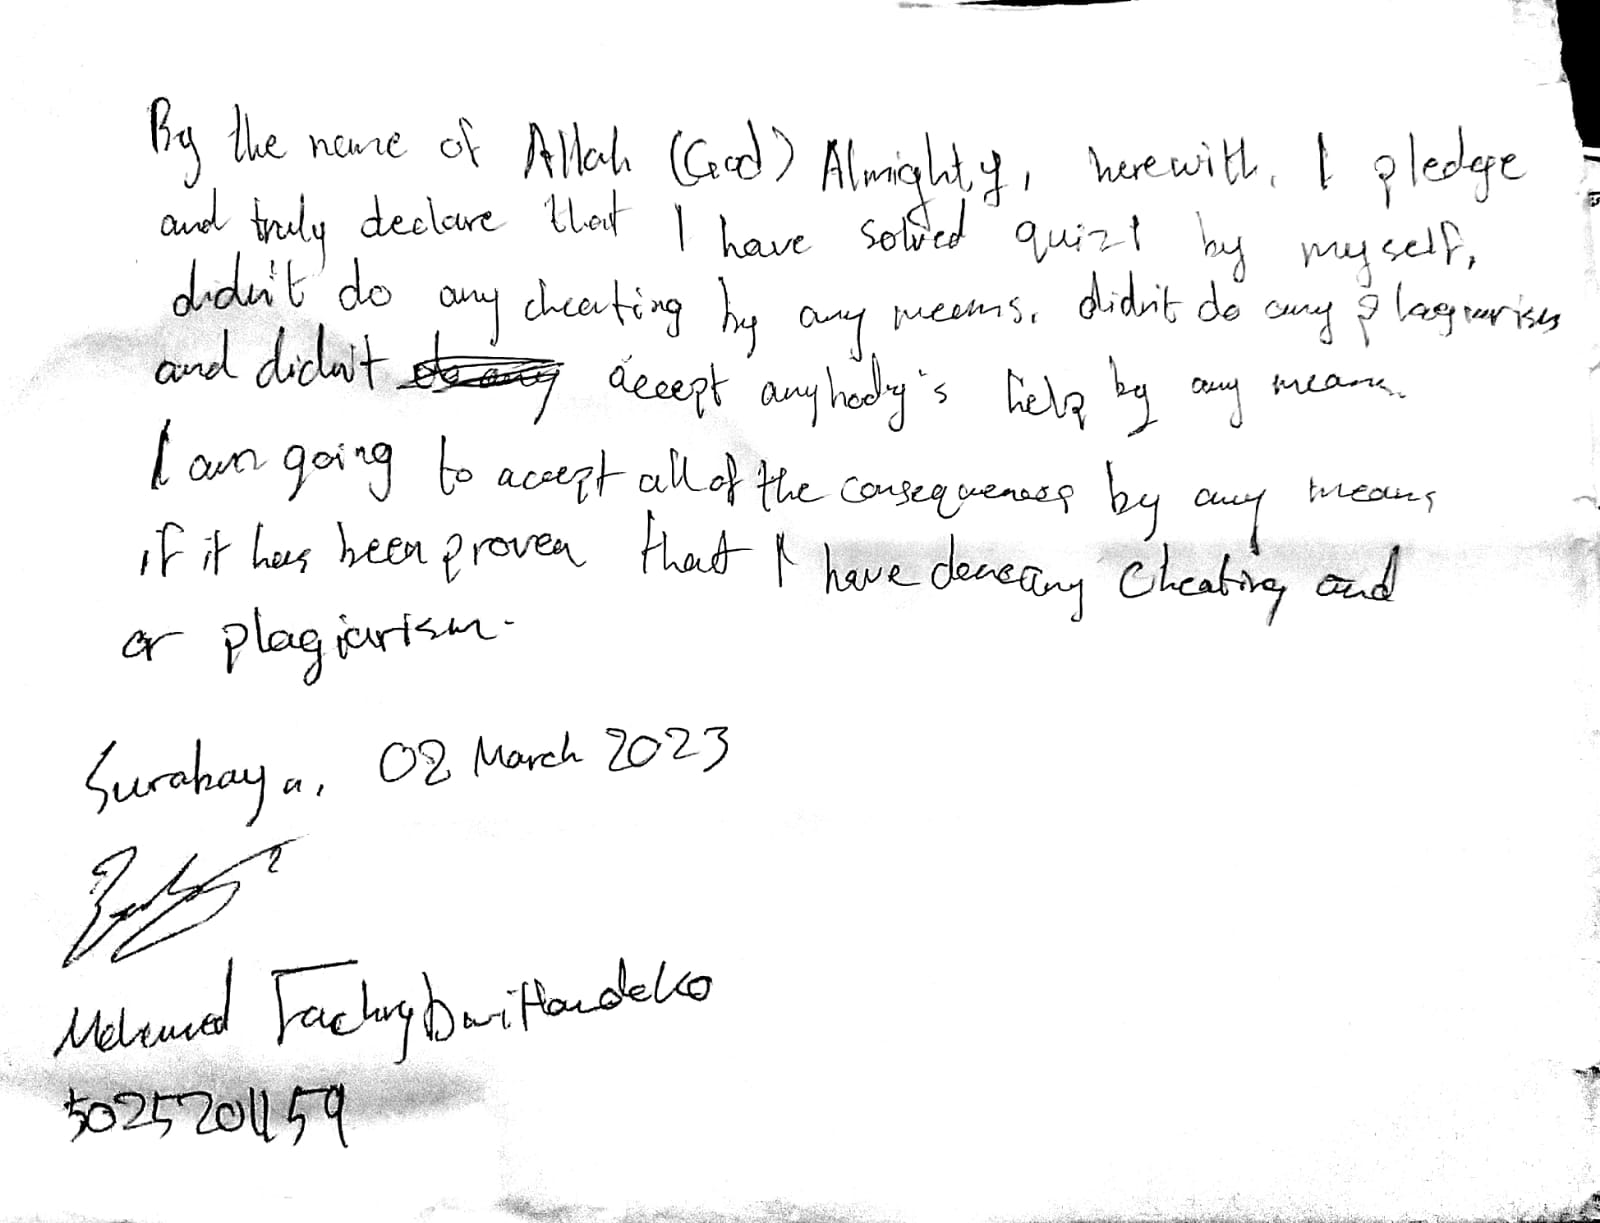 By the name of Allah (God) Almighty, herewith, I pledge
and truly declare that I have solved quiz 1 by myself,
didn't do any cheating by any means, didn't do any plagiarism
and didn't accept anybody's help by any means.
I am going to accept all of the consequences by any means
if it has been proven that I have done any cheating and
or plagiarism.
Surabaya, 02 March 2023
Fachry Dwi Handoko
5025201159